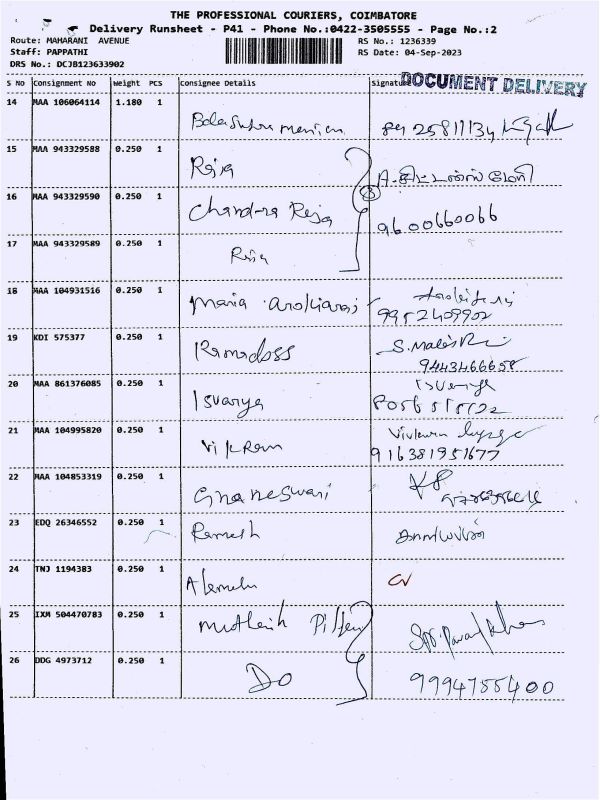 THE PROFESSIONAL COURIERS, COIMBATORE
Delivery Runsheet - P41 - Phone No.:0422-3505555 - Page No.:2
Route: MAHARANI AVENUE
RS No.: 1236339
Staff: PAPPATHI
RS Date: 04-Sep-2023
DRS No.: DCJB123633902
DOCUMENT DELIVERY
S No Consignment No Weight PCS Consignee Details Signature
14 MAA 106064114 1.180 1
15 MAA 943329588 0.250 1 Raja
16 MAA 943329590 0.250 1 Chandra Raja 9600660066
17 MAA 943329589 0.250 1 Raja
18 MAA 104931516 0.250 1 Maria Arokiaraj
9952409902
19 KDI 575377 0.250 1 Ramadoss
9443466658
20 MAA 861376085 0.250 1 Isvarya
21 MAA 104995820 0.250 1 Vikram
916381951677
22 MAA 104853319 0.250 1 Gnaneswari
23 EDQ 26346552 0.250 1 Ramesh
24 TNJ 1194383 0.250 1 Alamelu
25 IXM 504470783 0.250 1
26 DDG 4973712 0.250 1 Do 9994755400